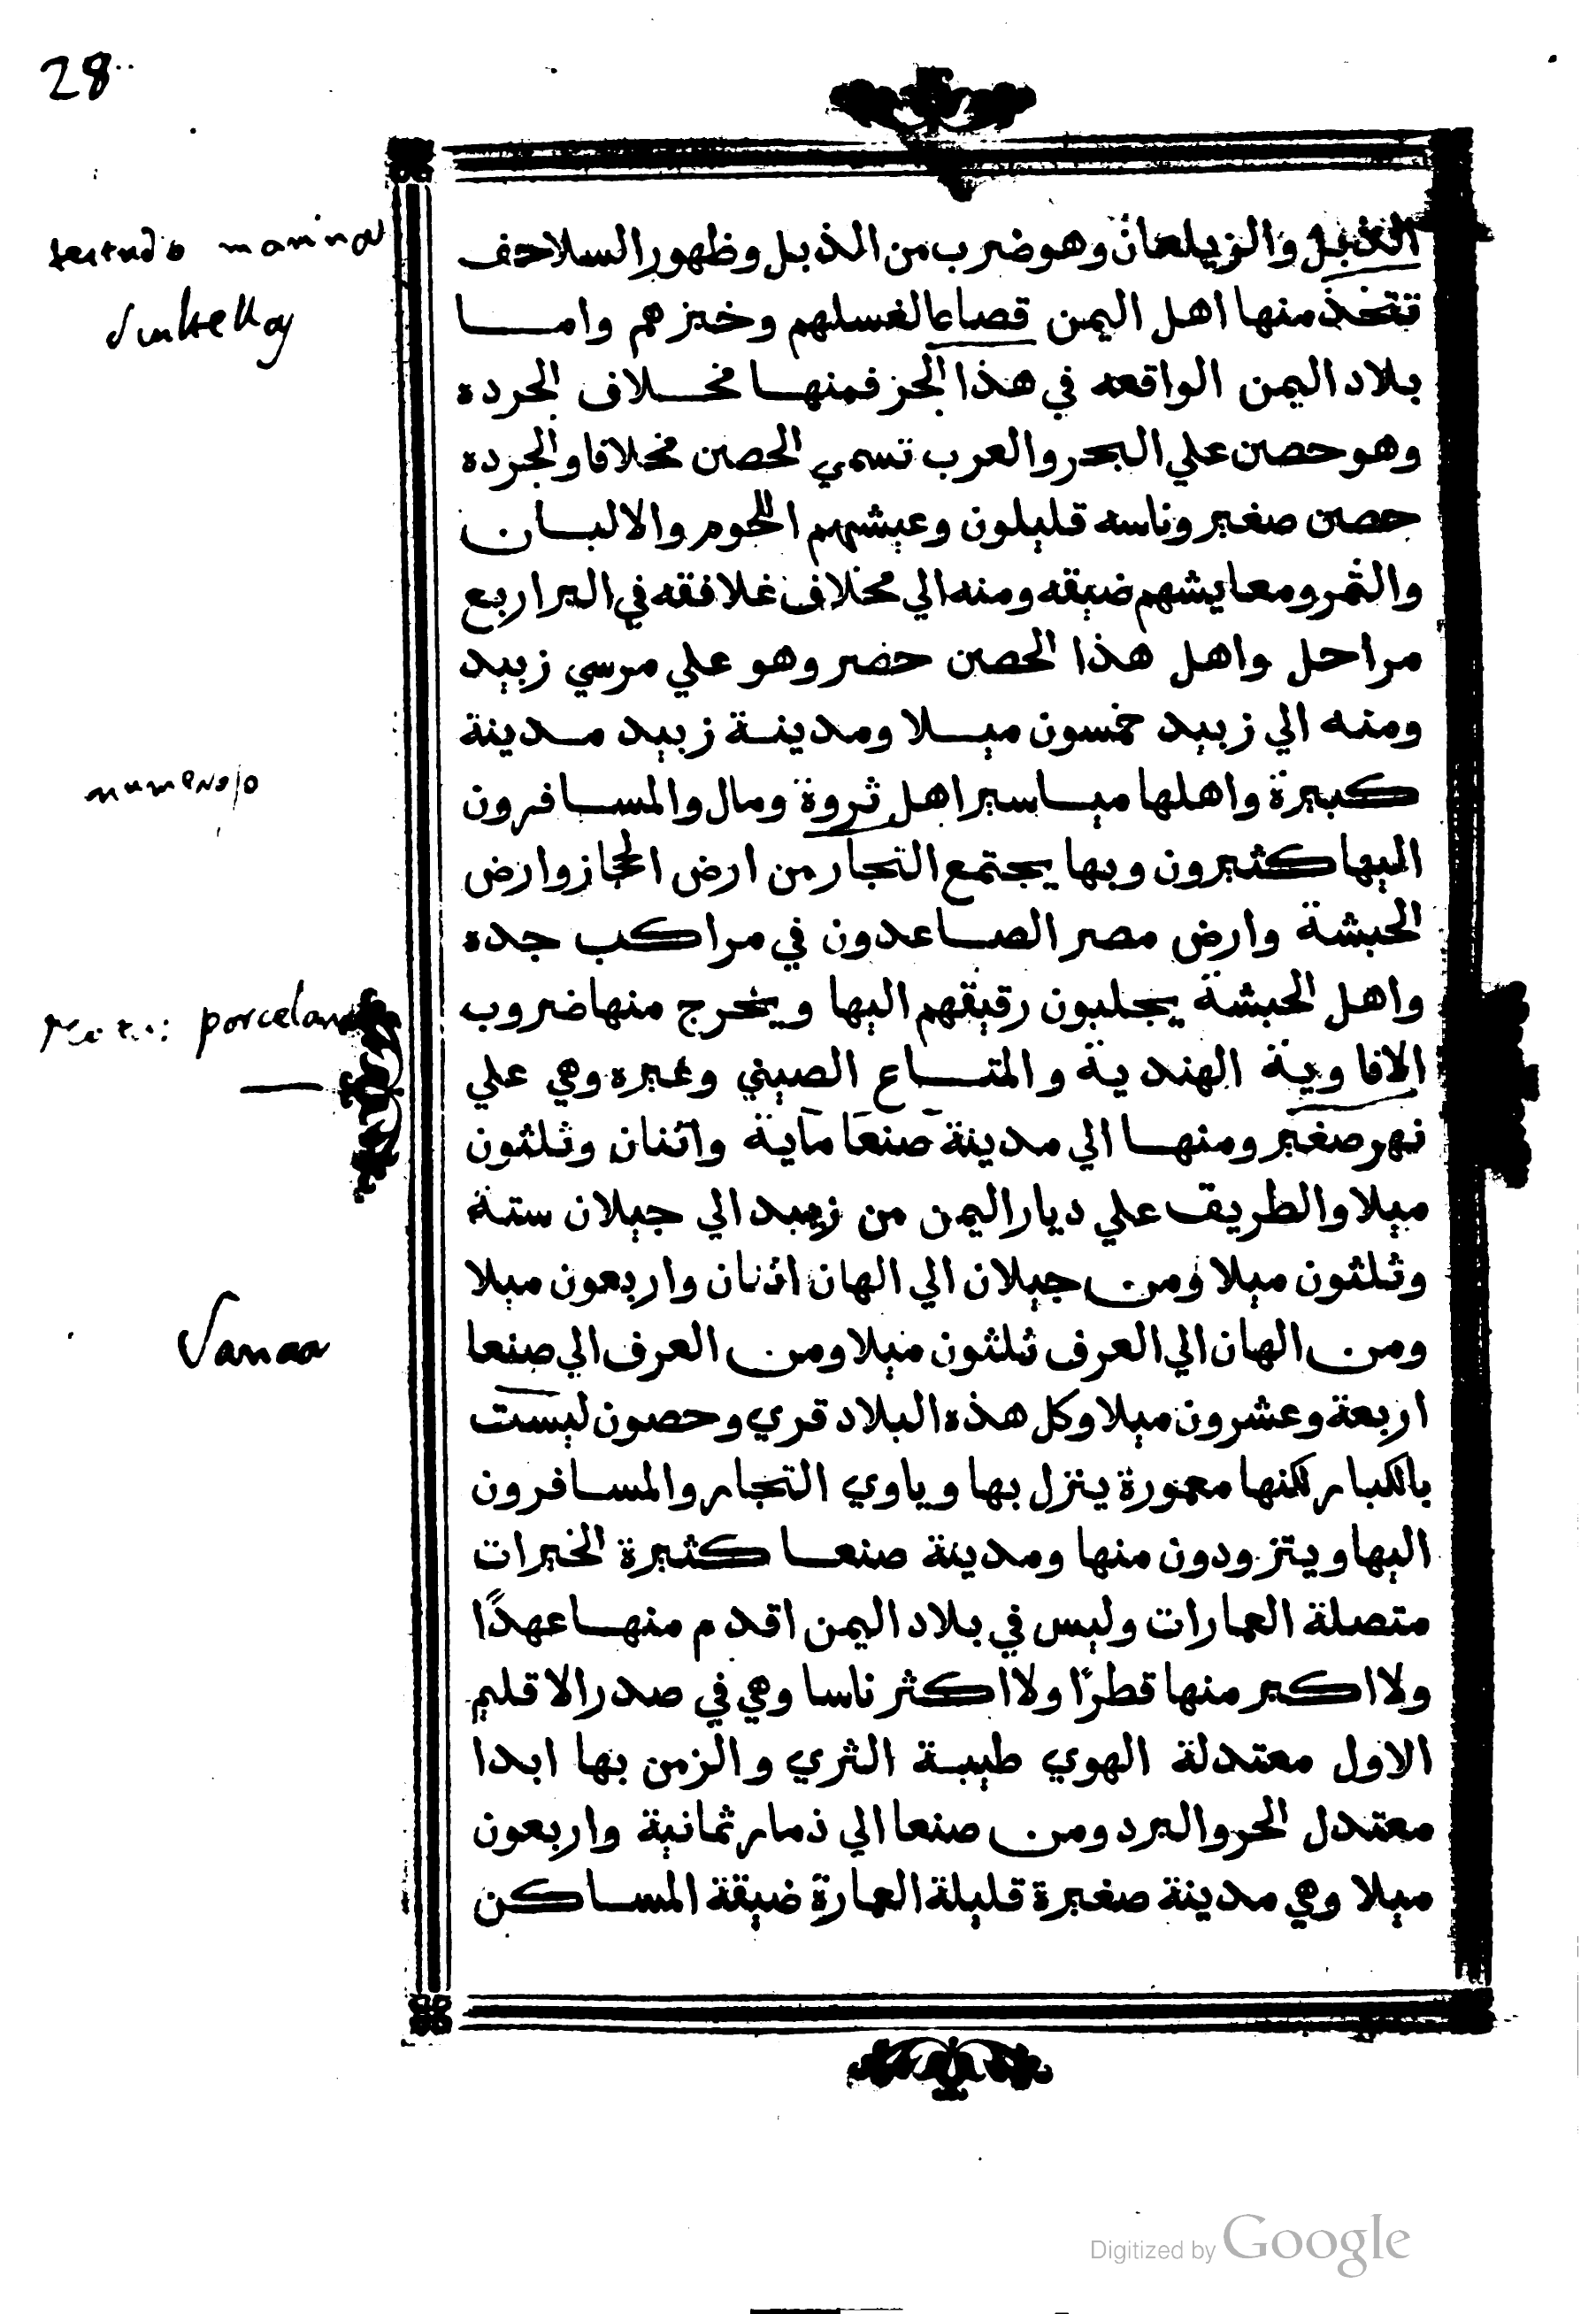 28
الذبل والزيلعان وهو ضرب من الذبل وظهور السلاحف
تتخذ منها اهل اليمن قصاعا لغسلهم وخبزهم واما
بلاد اليمن الواقعه في هذا الجز فمنها مخلاف الجرده
وهو حصن علي البحر والعرب تسمي الحصن مخلافا والجرده
حصن صغير وناسه قليلون وعيشهم اللحوم والالبان
والثمر ومعايشهم ضيقه ومنه الي مخلاف غلافقه في البر اربع
مراحل واهل هذا الحصن حضر وهو علي مرسي زبيد
ومنه الي زبيد خمسون ميلا ومدينة زبيد مدينة
كبيرة واهلها مياسير اهل ثروة ومال والمسافرون
numeroso
اليها كثيرون وبها يجتمع التجار من ارض الحجاز وارض
الحبشة وارض مصر الصاعدون في مراكب جده
واهل الحبشة يجلبون رقيقهم اليها ويخرج منها ضروب
الافاوية الهندية والمتاع الصيني وغيره وهي علي
نهر صغير ومنها الي مدينة صنعا ماية واثنان وثلثون
ميلا والطريق علي ديار اليمن من زبيد الي جيلان ستة
وثلثون ميلا ومن جيلان الي الهان اثنان واربعون ميلا
ومن الهان الي العرف ثلثون ميلا ومن العرف الي صنعا
Sanaa
اربعة وعشرون ميلا وكل هذه البلاد قري وحصون ليست
بالكبار لكنها معمورة ينزل بها وياوي التجار والمسافرون
اليها ويتزودون منها ومدينة صنعا كثيرة الخيرات
متصلة العمارات وليس في بلاد اليمن اقدم منها عهدًا
ولا اكبر منها قطرًا ولا اكثر ناسا وهي في صدر الاقليم
الاول معتدلة الهوي طيبة الثري والزمن بها ابدا
معتدل الحر والبرد ومن صنعا الي ذمار ثمانية واربعون
ميلا وهي مدينة صغيرة قليلة العمارة ضيقة المساكن
Digitized by Google